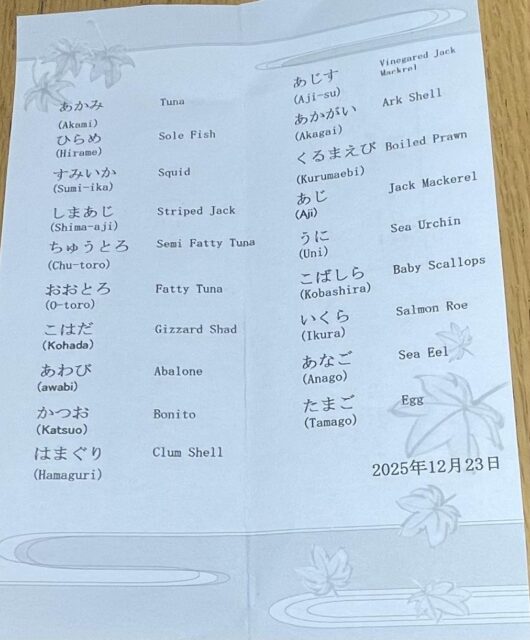 あかみ Tuna
(Akami)
ひらめ Sole Fish
(Hirame)
すみいか Squid
(Sumi-ika)
しまあじ Striped Jack
(Shima-aji)
ちゅうとろ Semi Fatty Tuna
(Chu-toro)
おおとろ Fatty Tuna
(O-toro)
こはだ Gizzard Shad
(Kohada)
あわび Abalone
(awabi)
かつお Bonito
(Katsuo)
はまぐり Clum Shell
(Hamaguri)
あじす Vinegared Jack
Mackrel
(Aji-su)
あかがい Ark Shell
(Akagai)
くるまえび Boiled Prawn
(Kurumaebi)
あじ Jack Mackerel
(Aji)
うに Sea Urchin
(Uni)
こばしら Baby Scallops
(Kobashira)
いくら Salmon Roe
(Ikura)
あなご Sea Eel
(Anago)
たまご Egg
(Tamago)
2025年12月23日